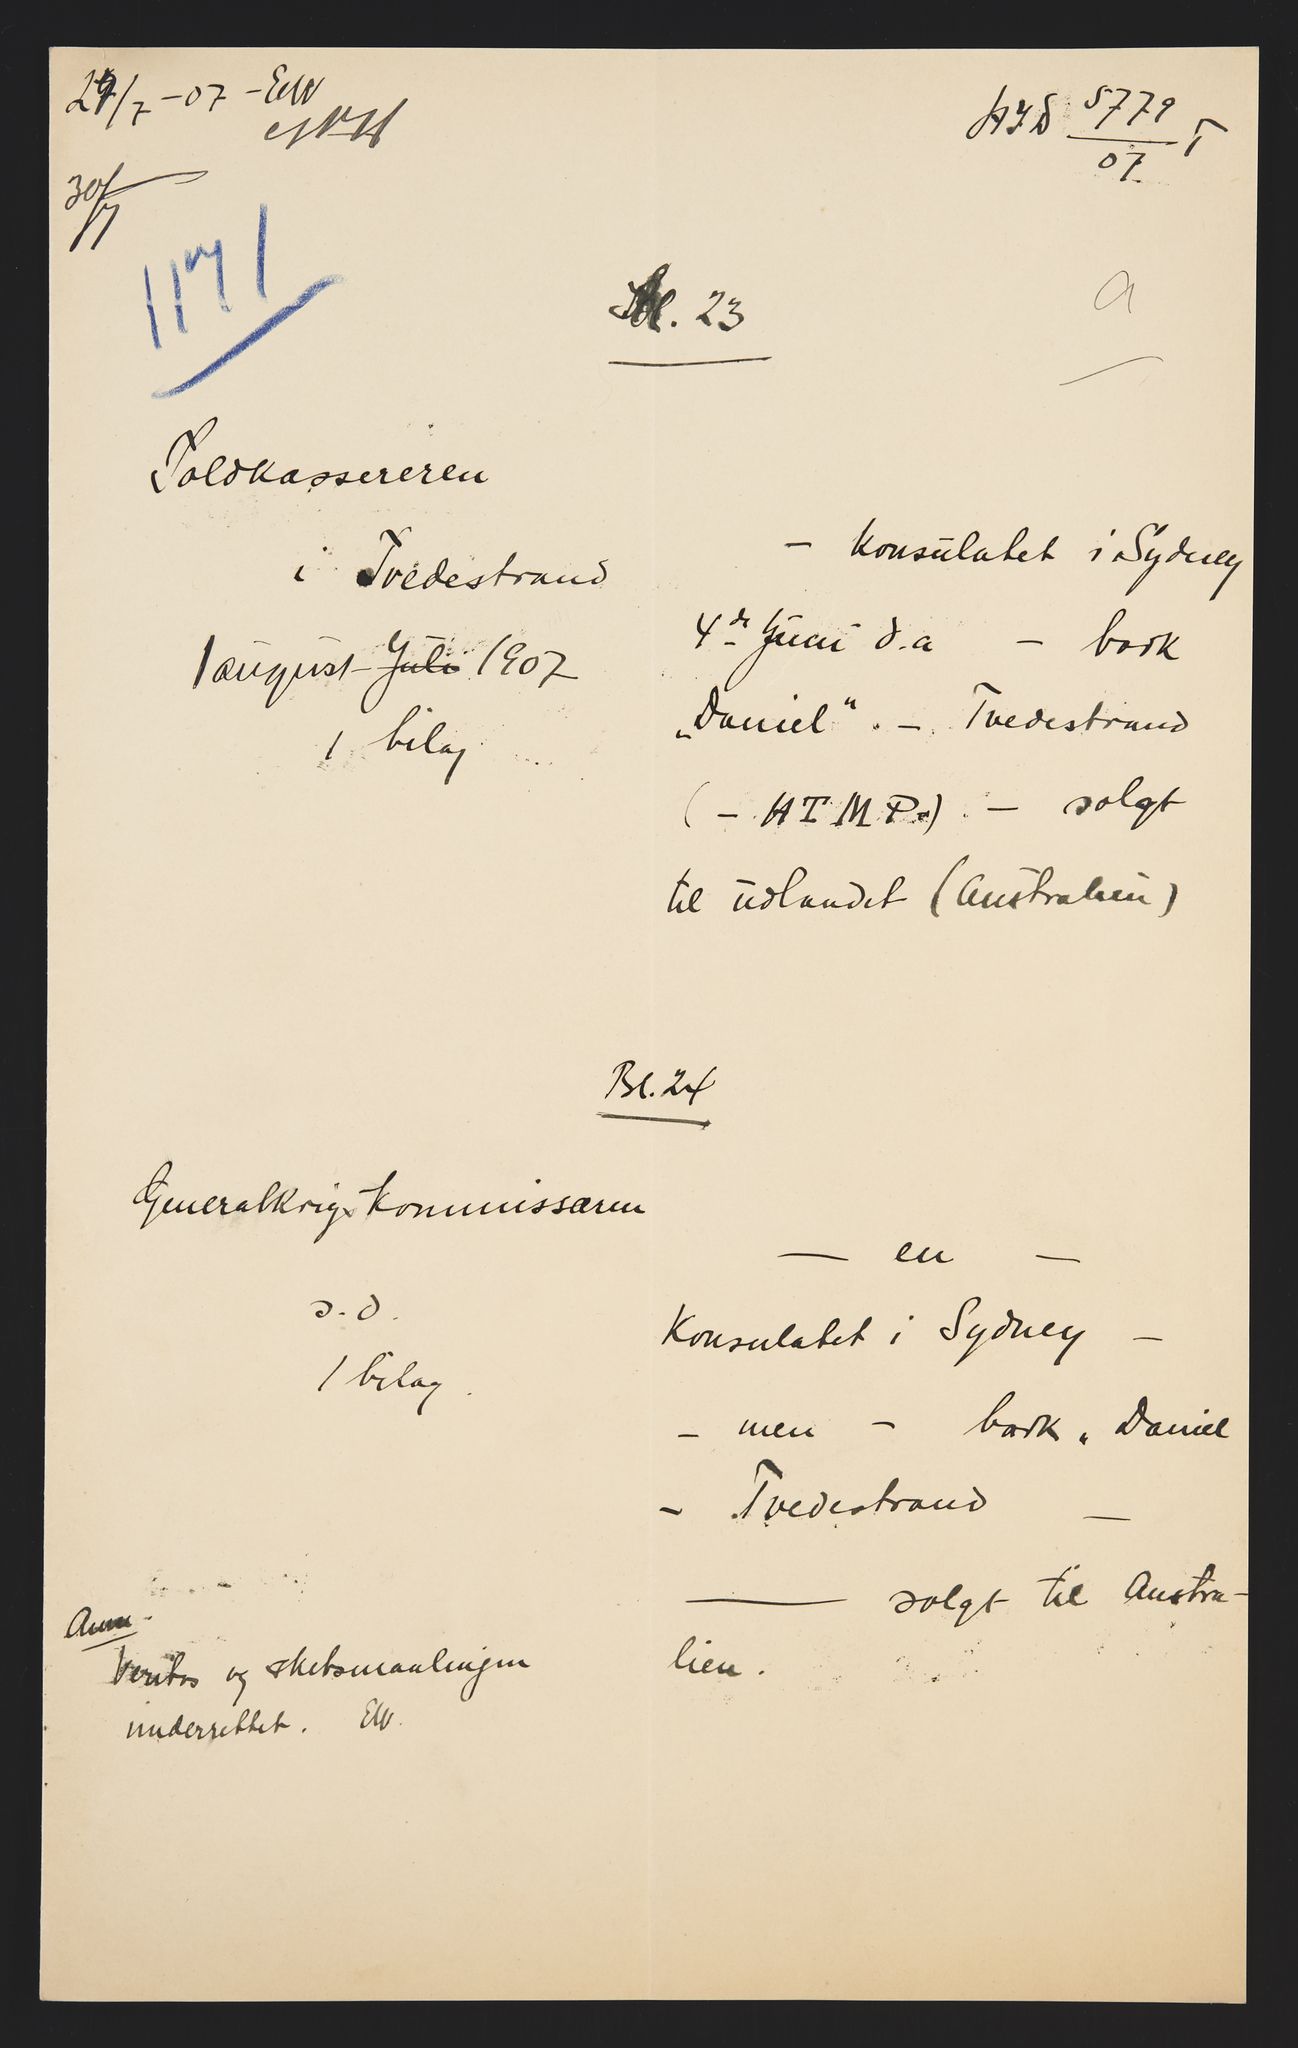 29/7 - 07 - EW
30/7
HID 5779/07 T
1171
Bl. 23
a
Toldkassereren
i Tvedestrand
1 august Juli 1907
1 bilag
- Konsulatet i Sydney
4de Juni d.a - bark
„Daniel“ - Tvedestrand
(- HTMP.) - solgt
til udlandet (Australien)
Bl. 24
Generalkrigskommissæren
s.d.
1 bilag.
- en -
Konsulatet i Sydney -
- men - bark „Daniel
- Tvedestrand -
- solgt til Austra-
lien.
Anm.
Veritas og skibsmaalingen
underrettet. EW.